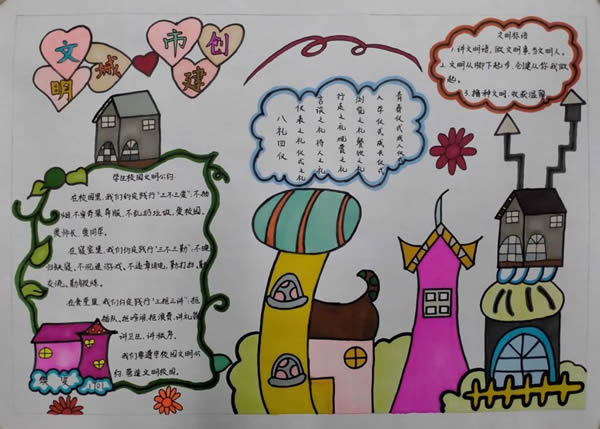 文明城市创建
学生校园文明公约
在校园里,我们约定践行“三不三爱”:不抽
烟、不穿奇装异服、不乱扔垃圾,爱校园、
爱师长、爱同学。
在寝室里,我们约定践行“三不三勤”:不晚
归缺寝、不沉迷游戏、不违章用电,勤打扫、勤
交流、勤锻炼。
在食堂里,我们约定践行“三拒三讲”:拒
插队、拒喧哗、拒浪费,讲礼貌、
讲卫生、讲秩序。
我们要遵守校园文明公
约,营造文明校园。
八礼四仪
仪表之礼 仪式之礼
言谈之礼 待人之礼
行走之礼 观赏之礼
游览之礼 餐饮之礼
入学仪式 成长仪式
青春仪式 成人仪式
文明标语
1.讲文明语,做文明事,当文明人。
2.文明从脚下起步,创建从你我做
起。
3.播种文明,收获温馨